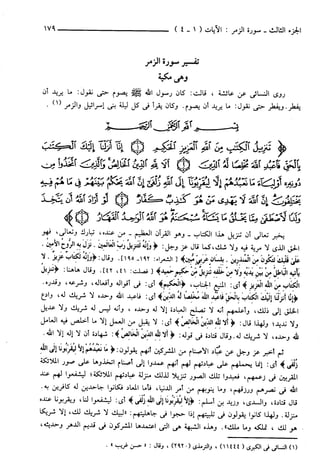 الجزء الثالث - سورة الزمر : الآيات ( ١ - ٤ ) ١٧٩
تفسير سورة الزمر
وهي مكية
روى النسائي عن عائشة ، قالت : كان رسول الله ﷺ يصوم حتى نقول : ما يريد أن
يفطر . ويفطر حتى نقول : ما يريد أن يصوم . وكان يقرأ في كل ليلة بني إسرائيل والزمر (١) .
بِسْمِ اللَّهِ الرَّحْمَٰنِ الرَّحِيمِ
﴿ تَنزِيلُ الْكِتَابِ مِنَ اللَّهِ الْعَزِيزِ الْحَكِيمِ ۝ إِنَّا أَنزَلْنَا إِلَيْكَ الْكِتَابَ
بِالْحَقِّ فَاعْبُدِ اللَّهَ مُخْلِصًا لَّهُ الدِّينَ ۝ أَلَا لِلَّهِ الدِّينُ الْخَالِصُ وَالَّذِينَ اتَّخَذُوا مِن
دُونِهِ أَوْلِيَاءَ مَا نَعْبُدُهُمْ إِلَّا لِيُقَرِّبُونَا إِلَى اللَّهِ زُلْفَىٰ إِنَّ اللَّهَ يَحْكُمُ بَيْنَهُمْ فِي مَا هُمْ فِيهِ
يَخْتَلِفُونَ إِنَّ اللَّهَ لَا يَهْدِي مَنْ هُوَ كَاذِبٌ كَفَّارٌ ۝ لَّوْ أَرَادَ اللَّهُ أَن يَتَّخِذَ
وَلَدًا لَّاصْطَفَىٰ مِمَّا يَخْلُقُ مَا يَشَاءُ سُبْحَانَهُ هُوَ اللَّهُ الْوَاحِدُ الْقَهَّارُ ۝ ﴾
يخبر تعالى أن تنزيل هذا الكتاب - وهو القرآن العظيم - من عنده ، تبارك وتعالى ، فهو
الحق الذي لا مرية فيه ولا شك ، كما قال عز وجل : ﴿ وإنه لتنزيل رب العالمين . نزل به الروح الأمين .
على قلبك لتكون من المنذرين . بلسان عربي مبين ﴾ [ الشعراء : ١٩٢ - ١٩٥ ] . وقال : ﴿ وإنه لكتاب عزيز . لا
يأتيه الباطل من بين يديه ولا من خلفه تنزيل من حكيم حميد ﴾ [ فصلت : ٤١ ، ٤٢ ] . وقال هاهنا : ﴿ تنزيل
الكتاب من الله العزيز ﴾ أي : المنيع الجناب ، ﴿ الحكيم ﴾ أي : في أقواله وأفعاله ، وشرعه ، وقدره .
﴿ إنا أنزلنا إليك الكتاب بالحق فاعبد الله مخلصا له الدين ﴾ أي : فاعبد الله وحده لا شريك له ، وادع
الخلق إلى ذلك ، وأعلمهم أنه لا تصلح العبادة إلا له وحده ، وأنه ليس له شريك ولا عديل
ولا نديد ؛ ولهذا قال : ﴿ ألا لله الدين الخالص ﴾ أي : لا يقبل من العمل إلا ما أخلص فيه العامل
لله وحده ، لا شريك له . وقال قتادة في قوله : ﴿ ألا لله الدين الخالص ﴾ : شهادة أن لا إله إلا الله .
ثم أخبر عز وجل عن عُبَّاد الأصنام من المشركين أنهم يقولون : ﴿ ما نعبدهم إلا ليقربونا إلى الله
زلفى ﴾ أي : إنما يحملهم على عبادتهم لهم أنهم عمدوا إلى أصنام اتخذوها على صور الملائكة
المقربين في زعمهم ، فعبدوا تلك الصور تنزيلا لذلك منزلة عبادتهم الملائكة ؛ ليشفعوا لهم عند
الله في نصرهم ورزقهم ، وما ينوبهم من أمر الدنيا ، فأما المعاد فكانوا جاحدين له كافرين به .
قال قتادة ، والسدي ، وزيد بن أسلم : ﴿ إلا ليقربونا إلى الله زلفى ﴾ أي : ليشفعوا لنا ، ويقربونا عنده
منزلة . ولهذا كانوا يقولون في تلبيتهم إذا حجوا في جاهليتهم : « لبيك لا شريك لك ، إلا شريكا
هو لك ، تملكه وما ملك » . وهذه الشبهة هي التي اعتمدها المشركون في قديم الدهر وحديثه ،
(١) النسائي في الكبرى ( ١١٤٤٤ ) ، والترمذي ( ٢٩٢٠ ) ، وقال : « حسن غريب » .